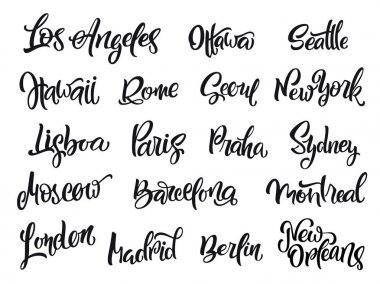 Los Angeles Ottawa Seattle
Hawaii Rome Seoul New York
Lisboa Paris Praha Sydney
Moscow Barcelona Montreal
London Madrid Berlin New
Orleans